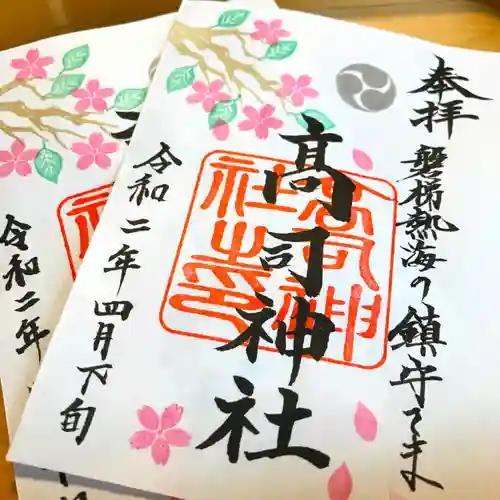 奉拝
磐梯熱海の鎮守さま
高司神社
高司神社之印
令和二年四月下旬
令和二年